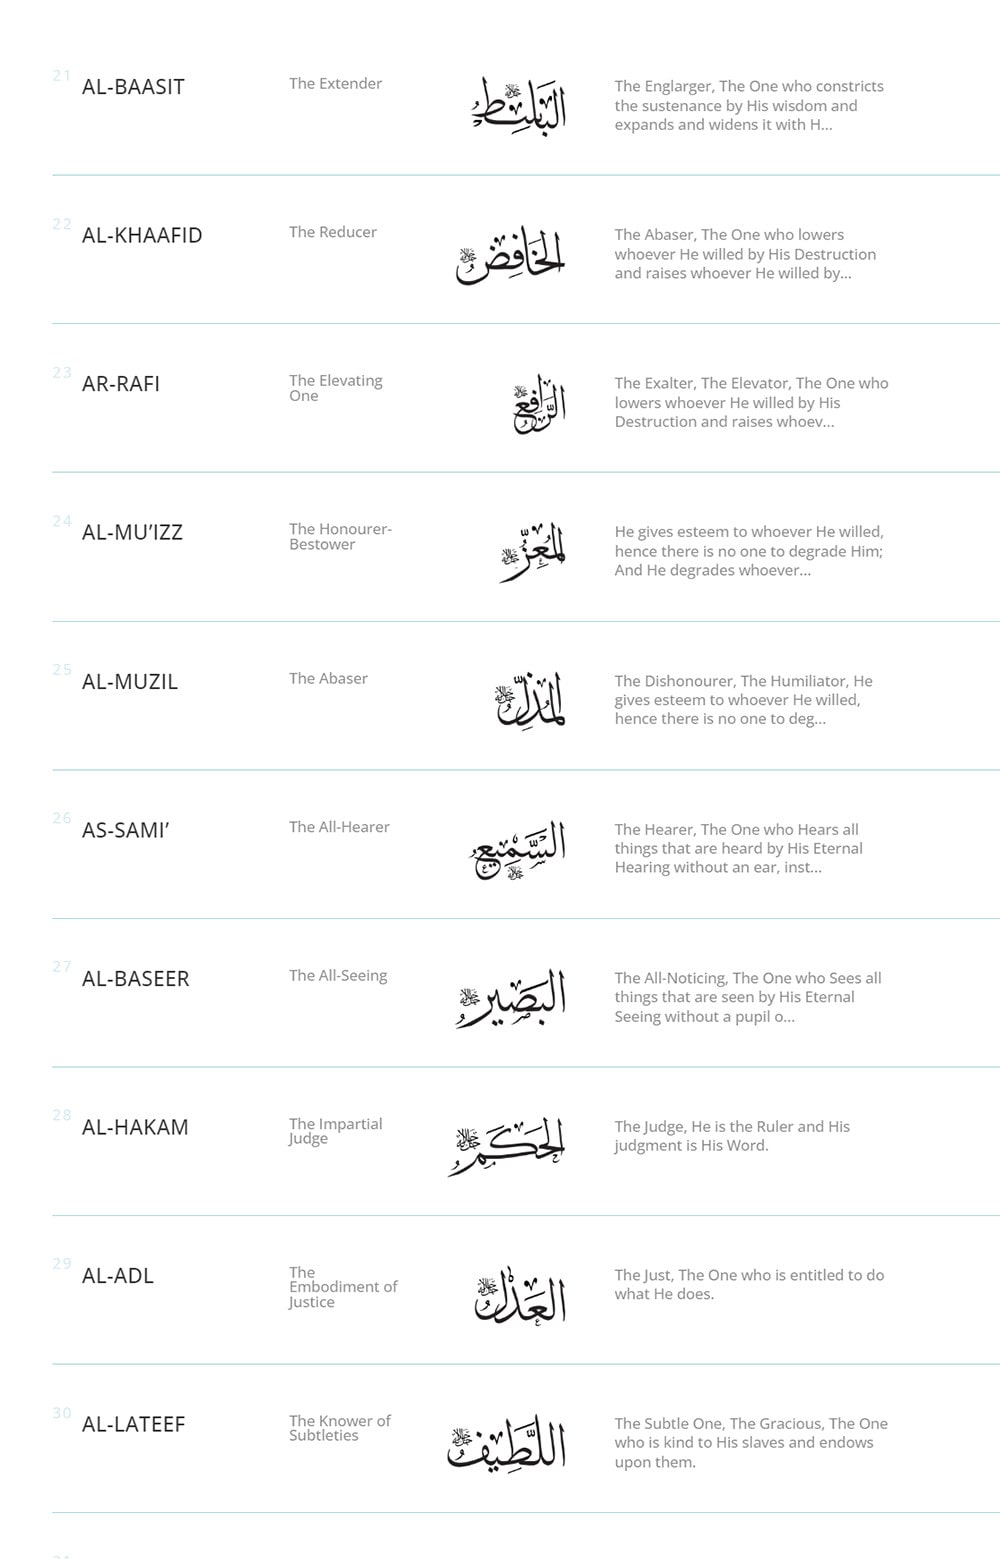 21
AL-BAASIT
The Extender
الباسط
The Englarger, The One who constricts
the sustenance by His wisdom and
expands and widens it with H...
22
AL-KHAAFID
The Reducer
الخَافِض
The Abaser, The One who lowers
whoever He willed by His Destruction
and raises whoever He willed by...
23
AR-RAFI
The Elevating
One
الرَّافع
The Exalter, The Elevator, The One who
lowers whoever He willed by His
Destruction and raises whoev...
24
AL-MU’IZZ
The Honourer-
Bestower
المُعِزُّ
He gives esteem to whoever He willed,
hence there is no one to degrade Him;
And He degrades whoever...
25
AL-MUZIL
The Abaser
المُذِلّ
The Dishonourer, The Humiliator, He
gives esteem to whoever He willed,
hence there is no one to deg...
26
AS-SAMI’
The All-Hearer
السَّمِيع
The Hearer, The One who Hears all
things that are heard by His Eternal
Hearing without an ear, inst...
27
AL-BASEER
The All-Seeing
البَصِير
The All-Noticing, The One who Sees all
things that are seen by His Eternal
Seeing without a pupil o...
28
AL-HAKAM
The Impartial
Judge
الحَكَم
The Judge, He is the Ruler and His
judgment is His Word.
29
AL-ADL
The
Embodiment of
Justice
العَدْل
The Just, The One who is entitled to do
what He does.
30
AL-LATEEF
The Knower of
Subtleties
اللَّطِيف
The Subtle One, The Gracious, The One
who is kind to His slaves and endows
upon them.